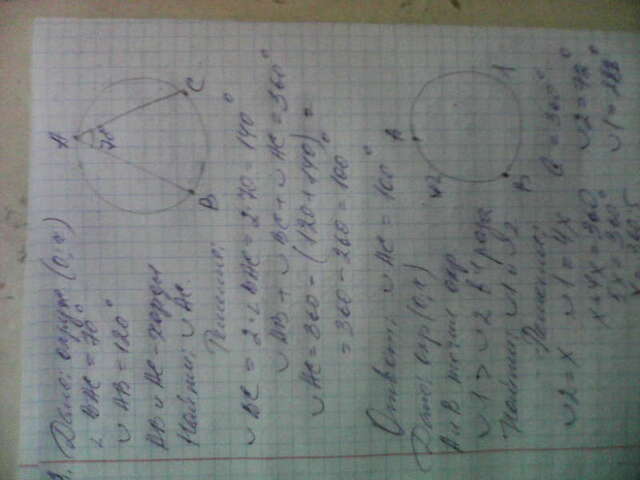 Дано: окруж (O, r)
∠ BAC = 70°
∪ AB = 120°
AB и AC - хорды
Найти: ∪ AC
Решение:
A
70°
C
B
∪ BC = 2 · ∠ BAC = 2 · 70 = 140°
∪ AB + ∪ BC + ∪ AC = 360°
∪ AC = 360 - (120 + 140) =
= 360 - 260 = 100°
Ответ: ∪ AC = 100°
Дано: окр (O, r)
A и B точки окр
∪ 1 > ∪ 2 в раза
Найти: ∪ 1 и ∪ 2
Решение:
A
B
∪ 2 = x ∪ 1 = 4x = 360°
x + 4x = 360 ∪ 2 = 72°
5x = 360° ∪ 1 = 288°